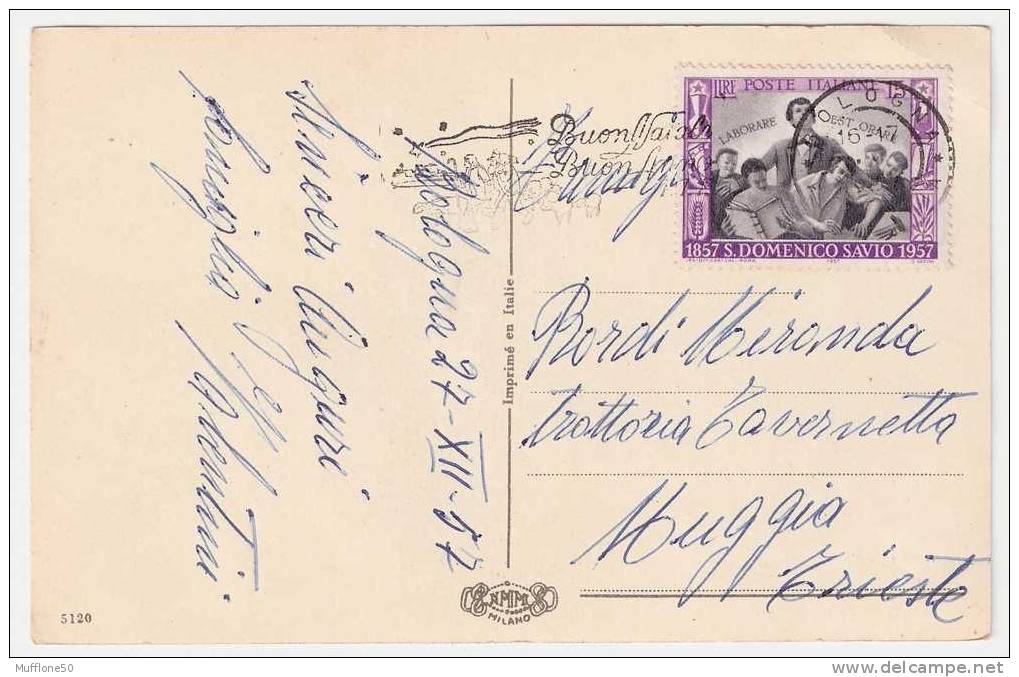 Bologna 27-XII-57
Sinceri Auguri
famiglia
Buon Natale
Buon Anno
LIRE POSTE ITALIANE 15
LABORARE
1857 S. DOMENICO SAVIO 1957
1957
Bordi Miranda
Trattoria Tavernetta
Muggia
Trieste
Imprimé en Italie
N.M.M.
MILANO
5120
Mufflone50
www.delcampe.net